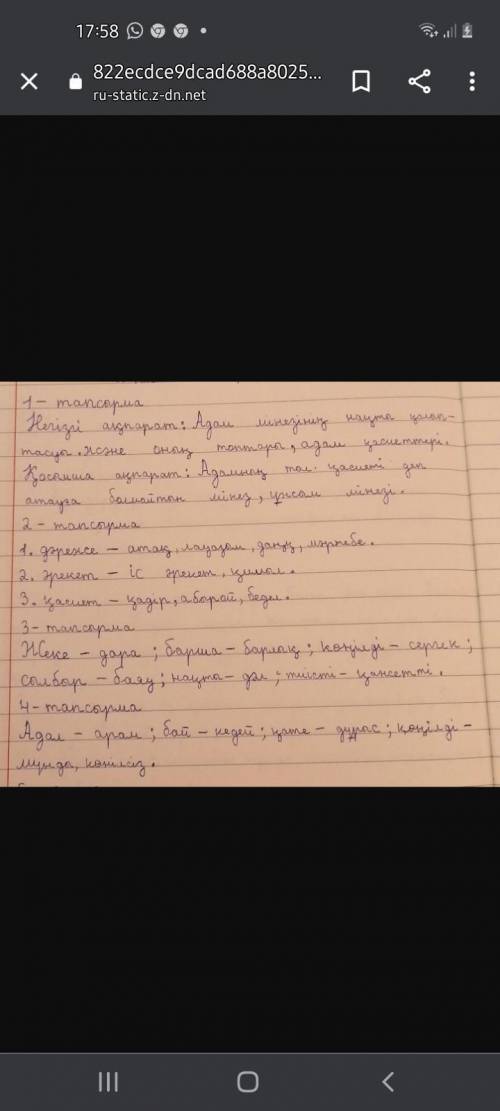 17:58
822ecdce9dcad688a8025...
ru-static.z-dn.net
1- тапсырма
Негізгі ақпарат: Адам мінезінің нақты қалып-
тасуы. және оның топтары, адам қасиеттері.
Қосымша ақпарат: Адамның қасиеті деп
атауға болмайтын мінез, ұқсам мінезі.
2- тапсырма
1. дәреже – атақ, лауазым, даңқ, мәртебе.
2. әрекет – іс әрекет, қимыл.
3. қасиет – қадір, абырой, бедел.
3- тапсырма
Жеке – дара; барша – барлық; көңілді – сергек;
солбыр – баяу; нақты – дәл; тиісті –
4- тапсырма
Адал – арам; бай – кедей; қате – дұрыс; көңілді –
мұңды, көңілсіз.